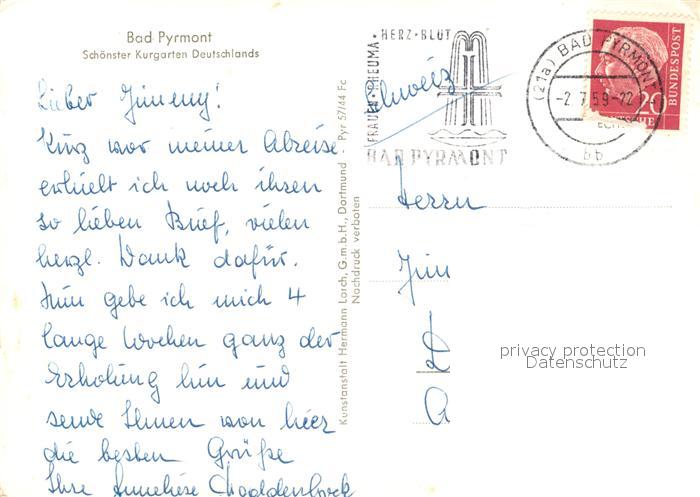 Bad Pyrmont
Schönster Kurgarten Deutschlands
Lieber Jimmy!
Kurz vor meiner Abreise
erhielt ich noch ihren
so lieben Brief, vielen
herzl. Dank dafür.
Nun gebe ich mich 4
lange Wochen ganz der
Erholung hin und
sende Ihnen von hier
die besten Grüße
Ihre Anneliese
Kunstanstalt Hermann Lorch, G.m.b.H., Dortmund Pyr 57/44 Fc
Nachdruck verboten
FRAUEN·RHEUMA·HERZ·BLUT
BAD PYRMONT
Schweiz
(21a) BAD PYRMONT
-2.7.59-22
bb
20
BUNDESPOST
Herrn
Jim
privacy protection
Datenschutz